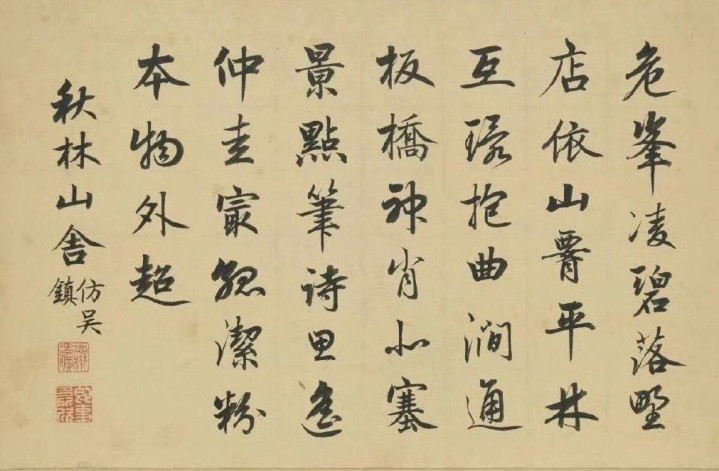 危峯凌碧落野
店依山平林
互環抱曲澗通
板橋神肖北塞
景點筆詩思遙
仲圭最孤潔粉
本物外超
秋林山舍
仿吳
鎮